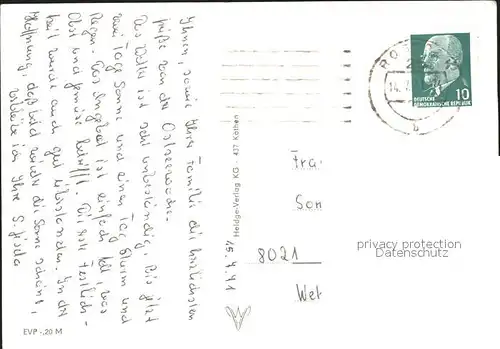 Ihnen, sowie Ihrer Familie die herzlichsten
Grüße von der Ostseewoche.
Das Wetter ist sehr unbeständig. Bis jetzt
zwei Tage Sonne und einen Tag Sturm und
Regen. Das Angebot ist einfach toll, was
Obst und Gemüse betrifft. Die
heit wurde auch gut überstanden. In der
Hoffnung, daß bald wieder die Sonne scheint,
Ihre S.
15.7.71
EVP -,20 M
Heldge-Verlag KG · 437 Köthen
14.7
10
DEUTSCHE
DEMOKRATISCHE REPUBLIK
Fra
Son
8021
privacy protection
Datenschutz